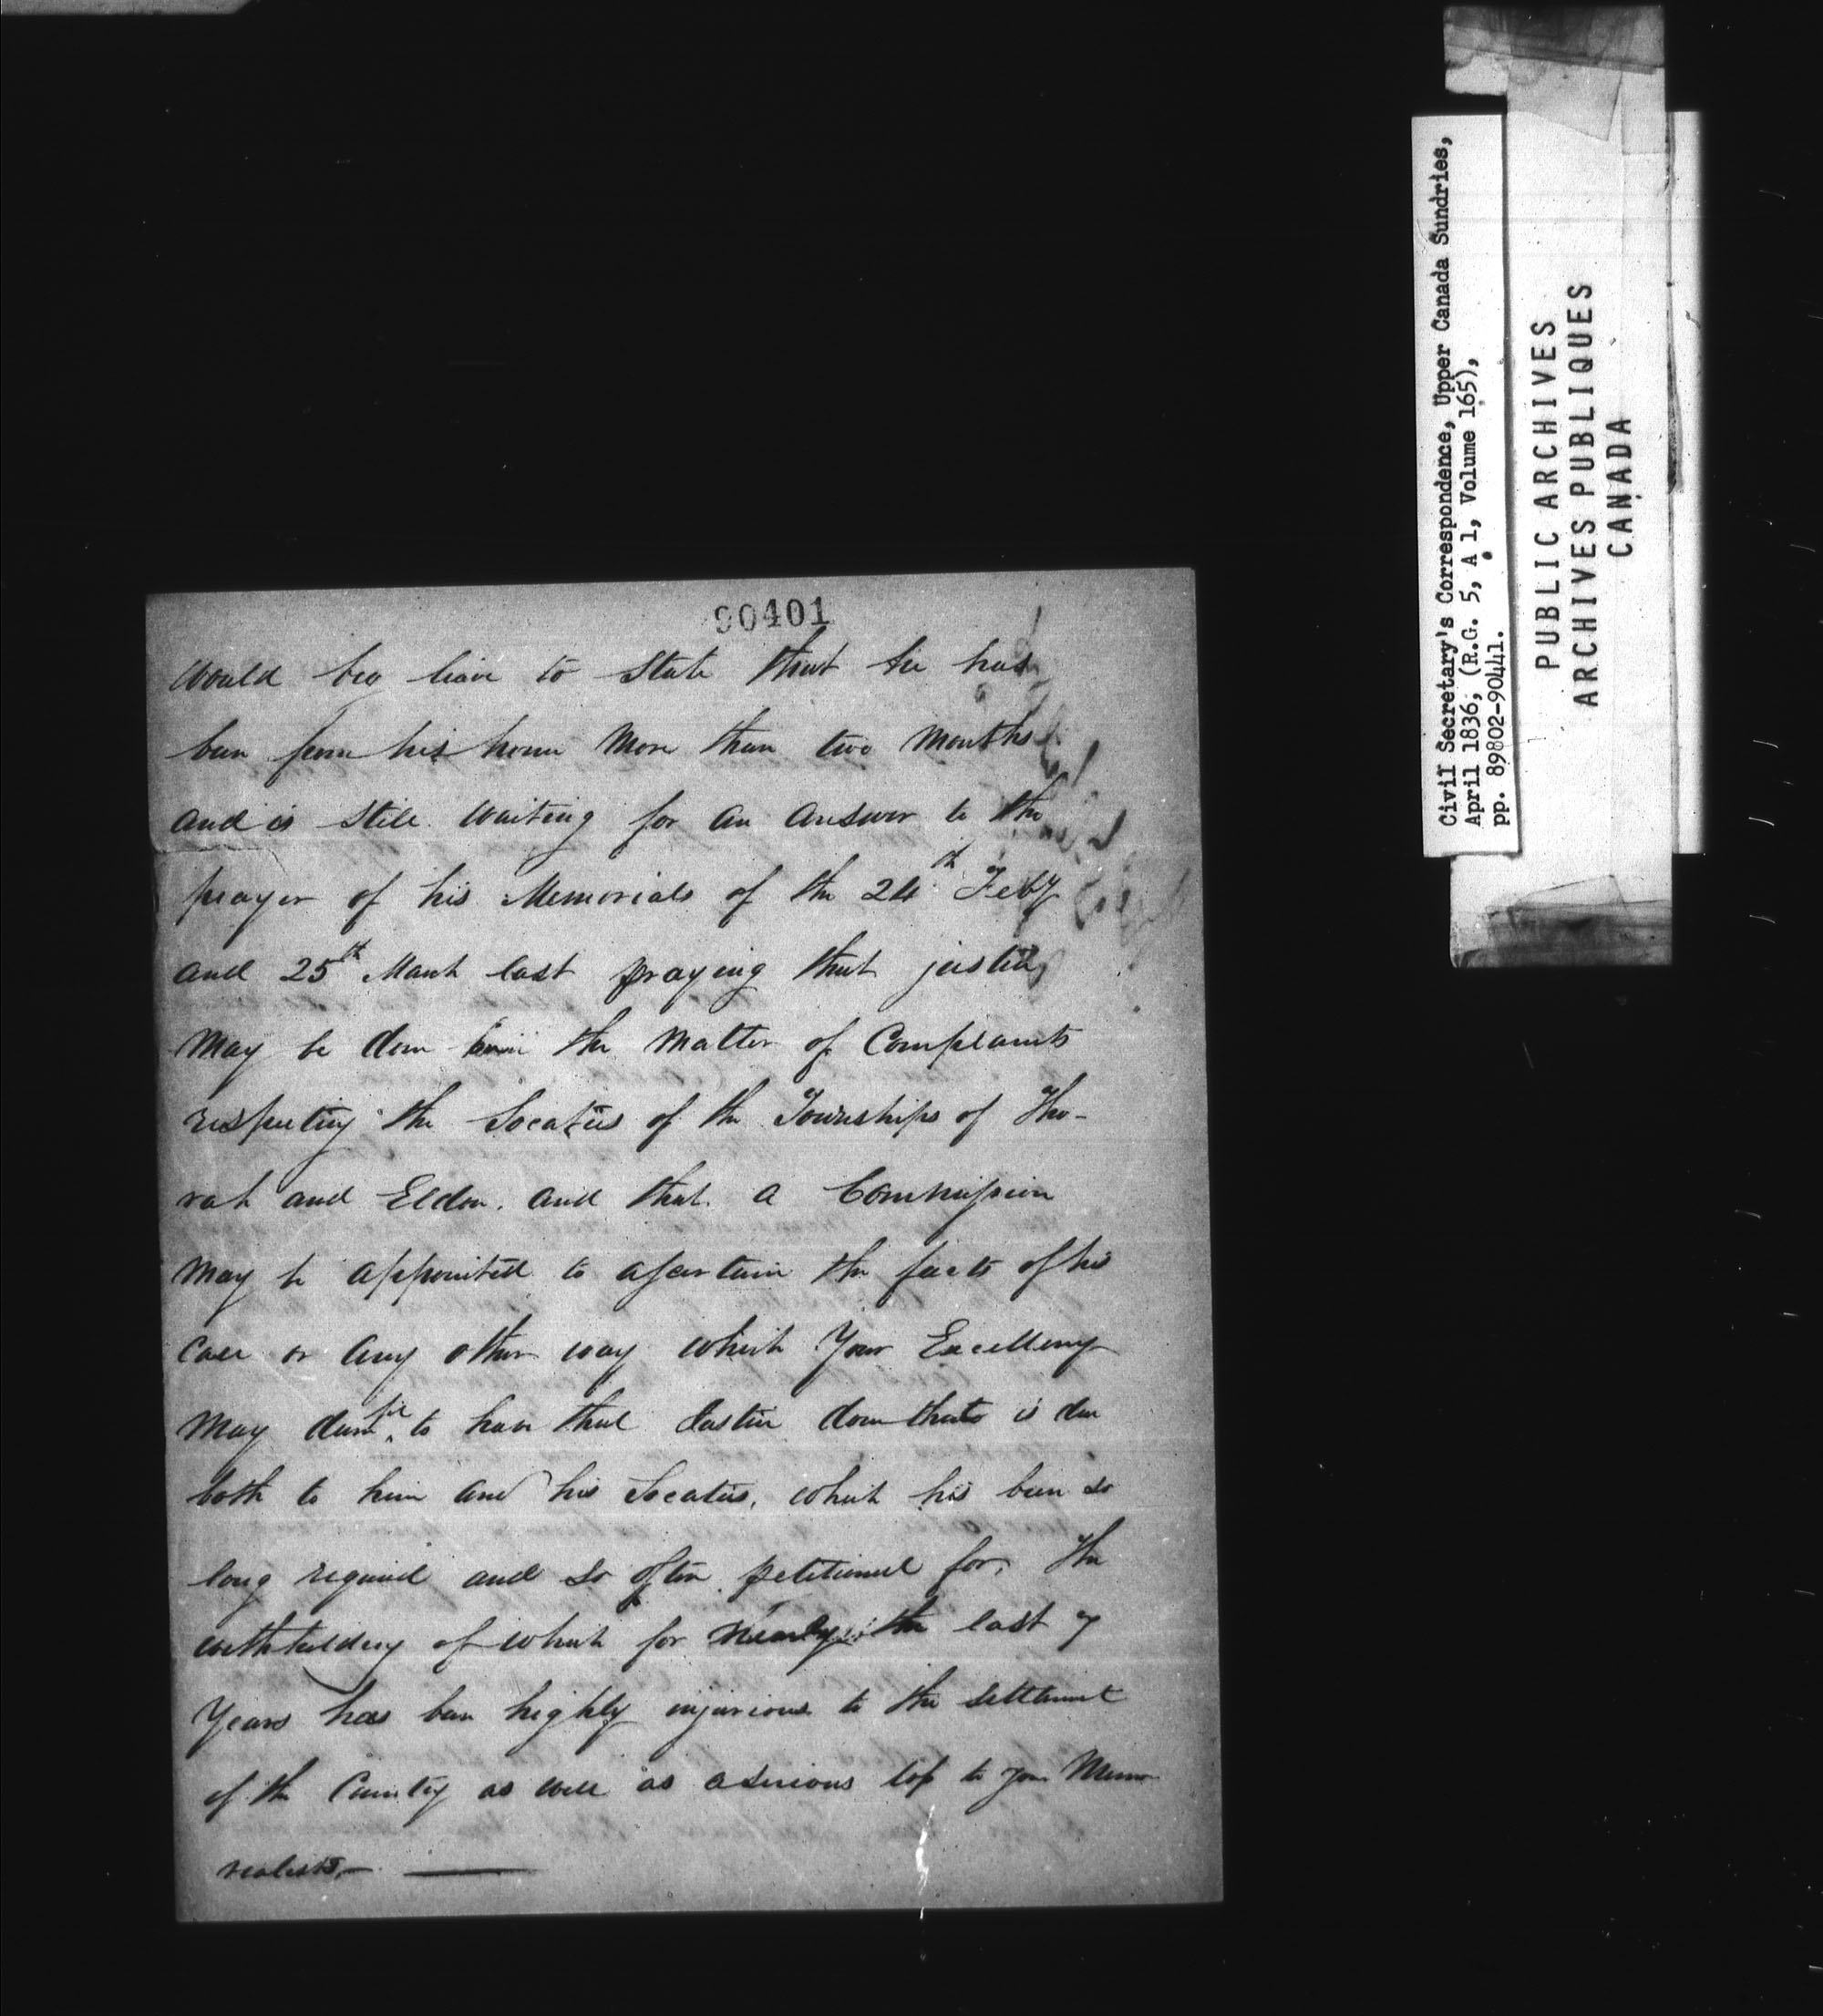 90401
Would beg leave to State that he has
been from his home More than two Months
and is still waiting for an answer to the
prayer of his Memorials of the 24th Feby
and 25th March last praying that justice
May be done the Matter of Complaints
respecting the Locatees of the Townships of Tho-
rah and Eldon. and that a Commission
May be appointed to assertain the facts of his
Case or any other way which Your Excellency
May deem fit to have that Justice done that is due
both to him and his Locatees, which has been so
long required and so often petitioned for, The
withholding of which for nearly the last 7
Years has been highly injurious to the settlement
of the Country as well as a serious loss to your Memo-
realists.
Civil Secretary's Correspondence, Upper Canada Sundries,
April 1836, (R.G. 5, A 1, Volume 165),
pp. 89802-90441.
PUBLIC ARCHIVES
ARCHIVES PUBLIQUES
CANADA